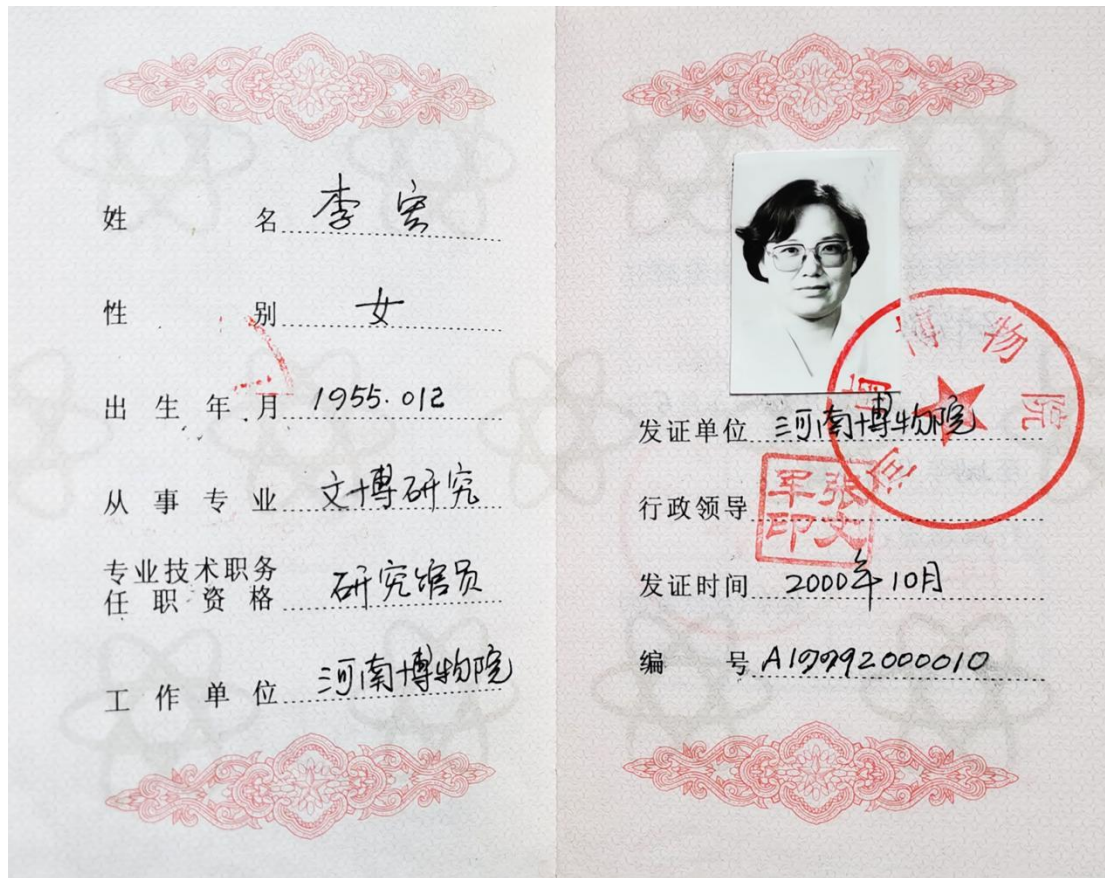 姓名 李宏
性别 女
出生年月 1955.012
从事专业 文博研究
专业技术职务
任职资格 研究馆员
工作单位 河南博物院
河南博物院
发证单位 河南博物院
行政领导
张文
军印
发证时间 2000年10月
编号 A19992000010